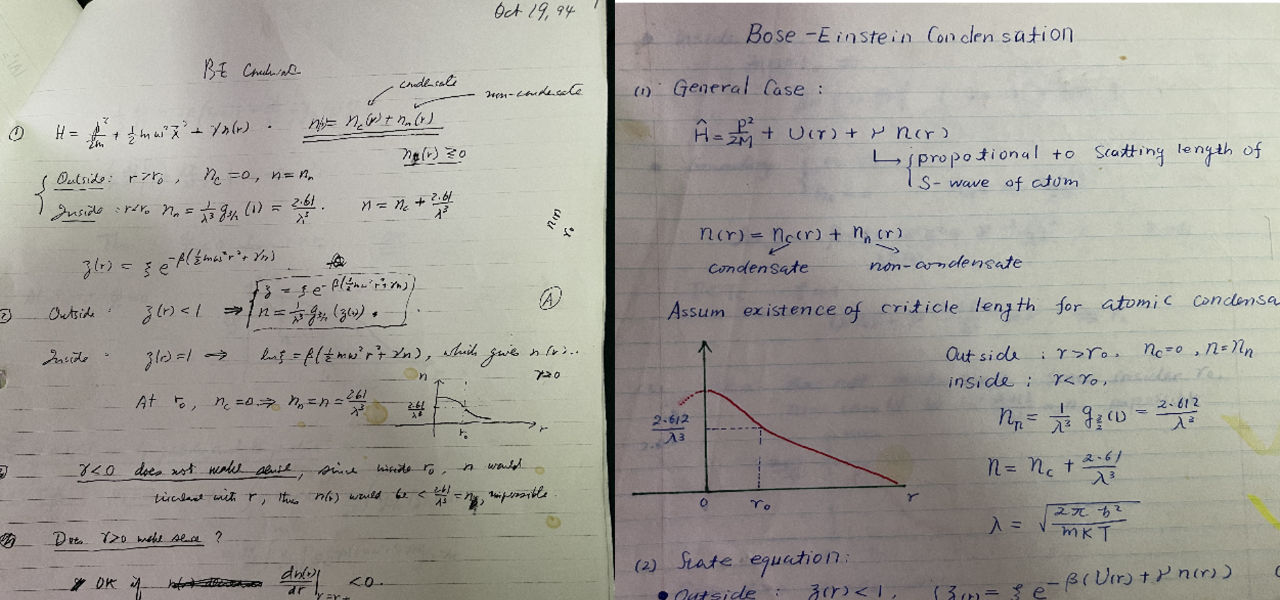 Oct 19, 94
BE Condensate
condensate
non-condensate
① H = p²/2m + ½mω²x² + γn(r). n(r) = n_c(r) + n_n(r)
n_c(r) ≥ 0
Outside: r>r₀, n_c=0, n=n_n
Inside: r<r₀ n_n = 1/λ³ g_{3/2}(1) = 2.61/λ³. n = n_c + 2.61/λ³
n(r)
r₀
z(r) = ξ e^{-β(½mω²r²+γn)}
② Outside: z(r)<1 ⇒ { z = ξ e^{-β(½mω²r²+γn)}
n = 1/λ³ g_{3/2}(z(r)).
Ⓐ
Inside z(r)=1 ⇒ lnξ = β(½mω²r²+γn), which gives n(r)..
r>0
At r₀, n_c=0 ⇒ n_n=n=2.61/λ³
n
2.61/λ³
r₀
r
γ<0 does not make sense, since inside r₀, n would
increase with r, thus n(r) would be < 2.61/λ³ = n, impossible.
Does γ>0 make sense?
OK if dn(r)/dr| <0.
r=r₊
Bose-Einstein Condensation
(1) General Case:
Ĥ = P²/2M + U(r) + γ n(r)
propotional to Scatting length of
S-wave of atom
n(r) = n_c(r) + n_n(r)
condensate non-condensate
Assum existence of criticle length for atomic condensa
Outside: r>r₀, n_c=0, n=n_n
inside: r<r₀,
n_n = 1/λ³ g_{3/2}(1) = 2.612/λ³
n = n_c + 2.61/λ³
λ = √(2πħ²/mKT)
2.612/λ³
0
r₀
r
(2) State equation:
• Outside: z(r)<1, {z(r) = ξ e^{-β(U(r)+γn(r))}